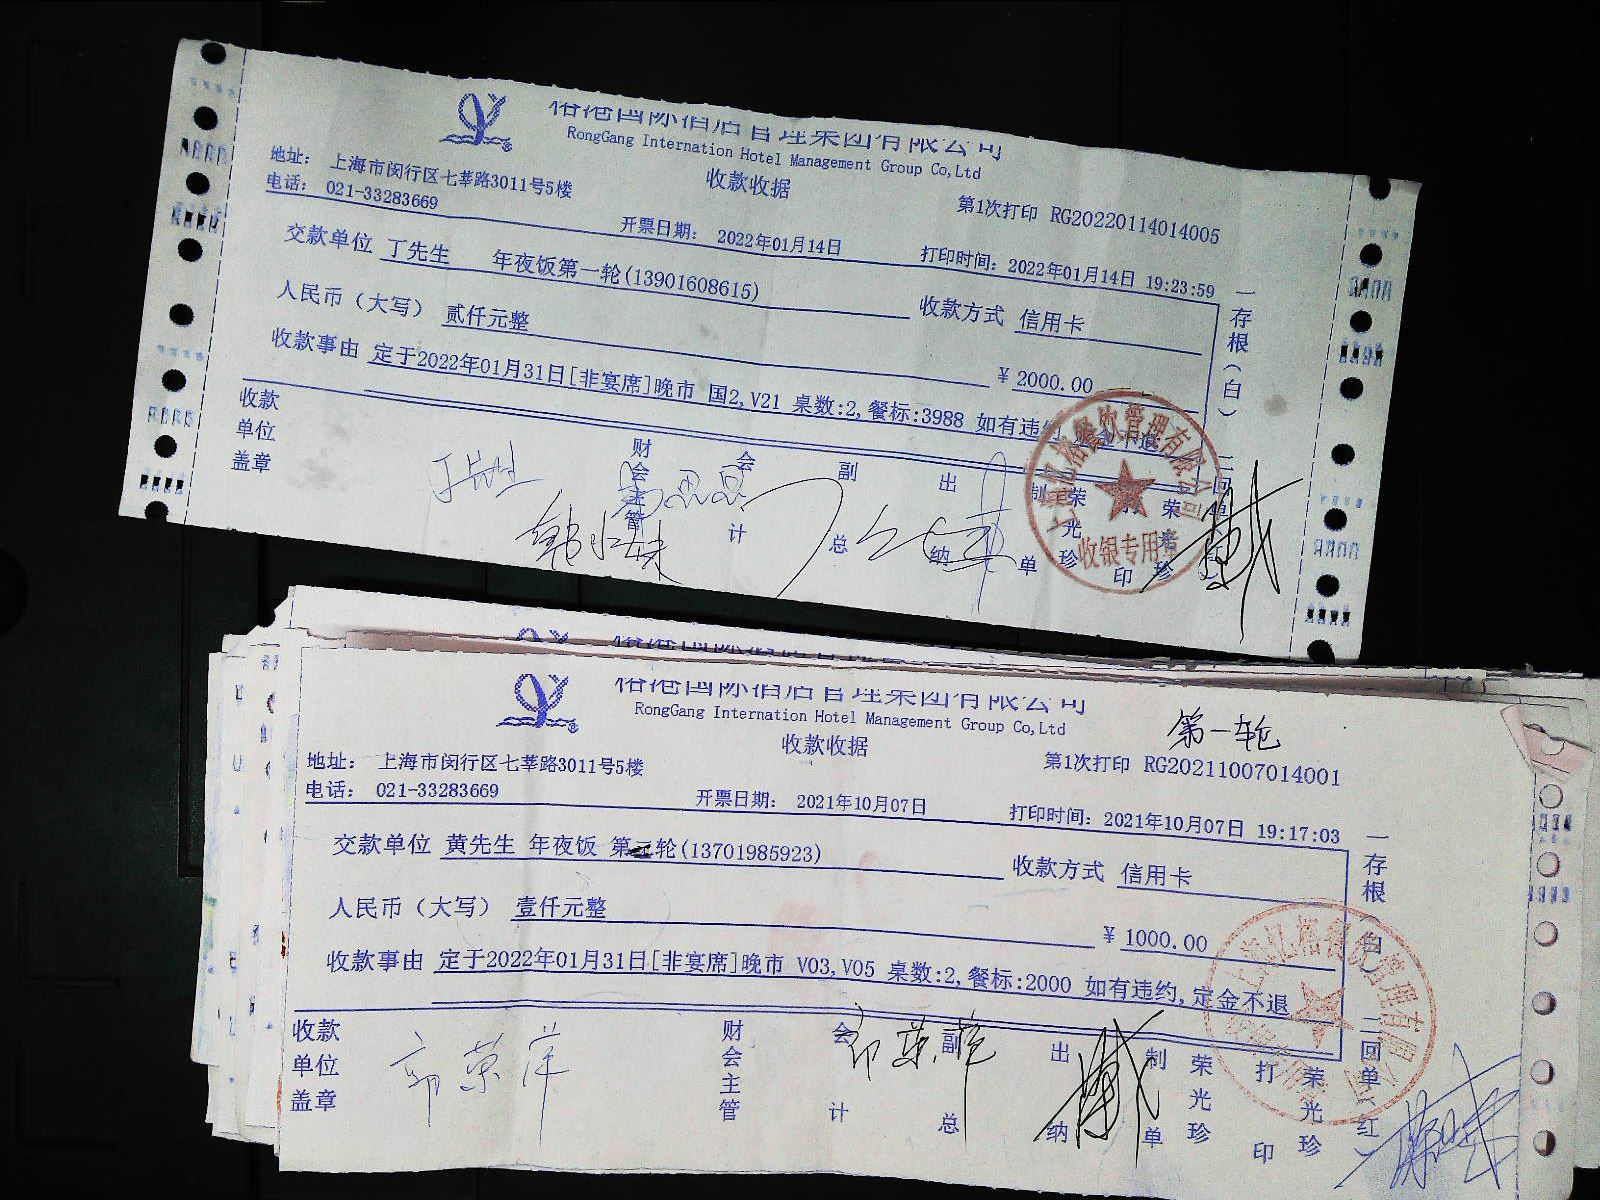 国际酒店管理集团有限公司
RongGang Internation Hotel Management Group Co,Ltd
收款收据
地址: 上海市闵行区七莘路3011号5楼
电话: 021-33283669
第1次打印 RG20220114014005
开票日期: 2022年01月14日
打印时间: 2022年01月14日 19:23:59
交款单位 丁先生 年夜饭第一轮(13901608615)
收款方式 信用卡
人民币（大写） 贰仟元整
￥2000.00
收款事由 定于2022年01月31日[非宴席]晚市 国2,V21 桌数:2,餐标:3988 如有违约
一存根（白）
二回单（红）
收款单位盖章
丁先生
财会主管
会计
副总
出纳
制单
荣光珍
打印
荣光珍
餐饮管理有限公司
收银专用章
国际酒店管理集团有限公司
RongGang Internation Hotel Management Group Co,Ltd
收款收据
第一轮
地址: 上海市闵行区七莘路3011号5楼
电话: 021-33283669
第1次打印 RG20211007014001
开票日期: 2021年10月07日
打印时间: 2021年10月07日 19:17:03
交款单位 黄先生 年夜饭 第 轮(13701985923)
收款方式 信用卡
人民币（大写） 壹仟元整
￥1000.00
收款事由 定于2022年01月31日[非宴席]晚市 V03,V05 桌数:2,餐标:2000 如有违约,定金不退
一存根（白）
二回单（红）
收款单位盖章
财会主管
会计
副总
出纳
制单
荣光珍
打印
荣光珍